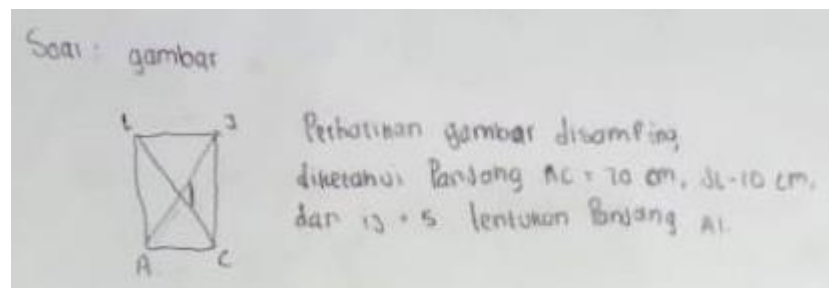 Soal: gambar
L J
Perhatikan gambar disamping
diketahui Panjang AC = 20 cm, JL = 10 cm,
dan IJ = 5 tentukan Panjang AI.
I
A C